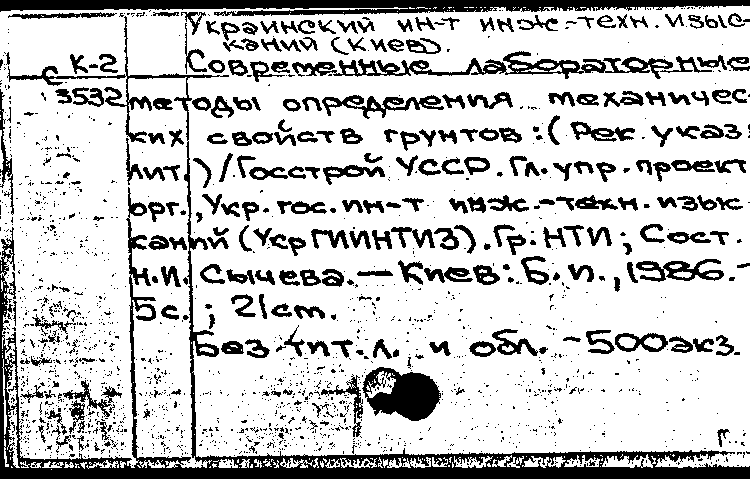 Украинский ин-т инж.-техн. изыс-
каний (Киев).
К-2 Современные лабораторные
С 3532 методы определения механичес-
ких свойств грунтов: (Рек. указ.
лит.) / Госстрой УССР. Гл. упр. проект.
орг., Укр. гос. ин-т инж.-техн. изыс-
каний (УкрГИИНТИЗ). Гр. НТИ; Сост.
Н.И. Сычева. — Киев: Б.и., 1986. -
5 с. ; 21 cm.
Без тит. л. и обл. - 500 экз.